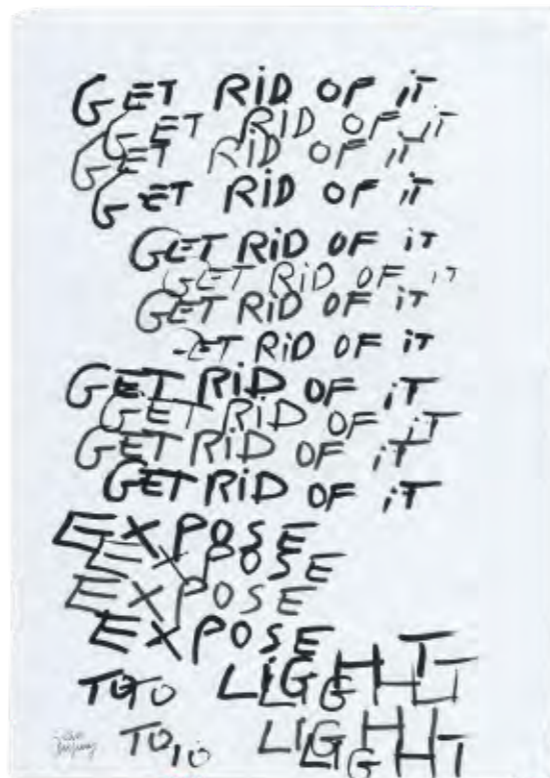 GET RiD OF iT
GET RiD OF iT
GET RiD OF iT
GET RiD OF iT
GET RiD OF iT
GET RiD OF iT
GET RiD OF iT
ET RiD OF iT
GET RiD OF iT
GET RiD OF iT
GET RiD OF iT
GET RiD OF iT
EXPOSE
EXPOSE
EXPOSE
EXPOSE
TO TO LiGHT
TO TO LiGHT